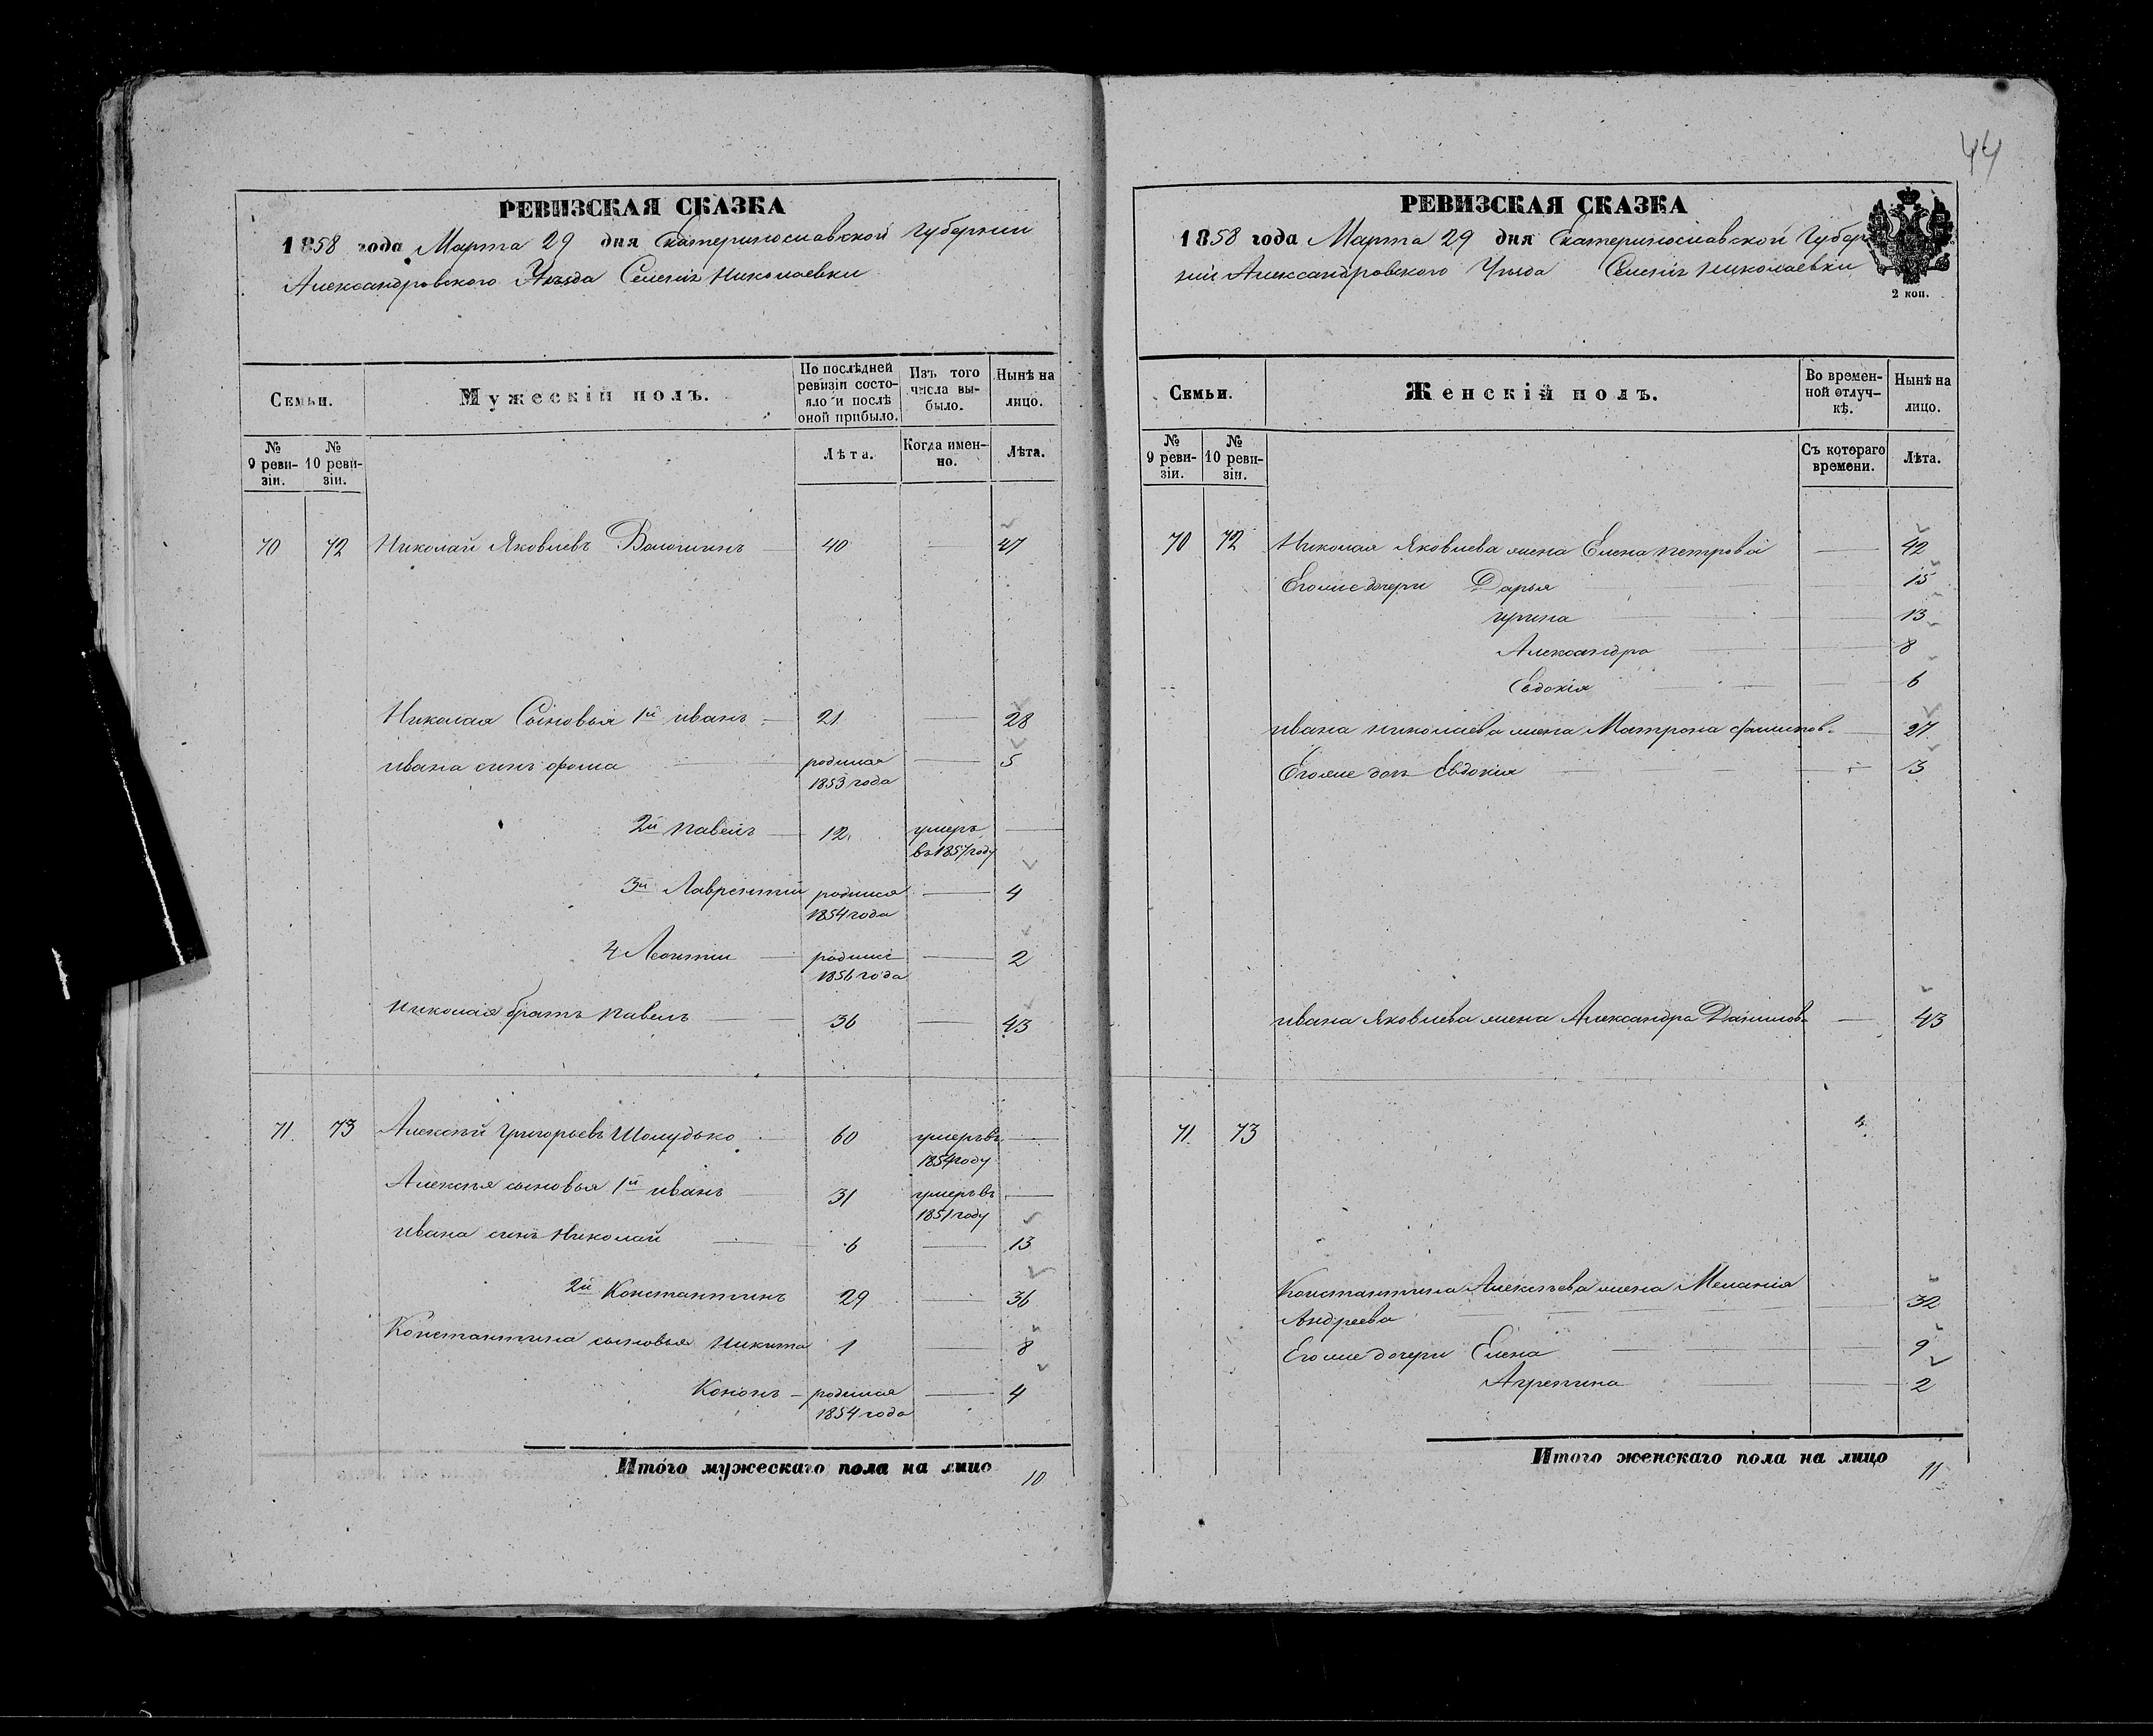 44
РЕВИЗСКАЯ СКАЗКА
1858 года Марта 29 дня Екатеринославской Губернии
Александровского Уѣзда Селенія Николаевки
Семьи.
Мужескій полъ.
По послѣдней ревизіи состояло и послѣ оной прибыло.
Изъ того числа выбыло.
Нынѣ на лицо.
№ 9 ревизіи.
№ 10 ревизіи.
Лѣта.
Когда именно.
Лѣта.
70 72 Николай Яковлевъ 40 — 47
Николая Сыновья 1й иванъ — 21 — 28
ивана сынъ фома — родился 1853 года — 5
2й павелъ — 12 умеръ въ 1857 году —
3й Лаврентий родился 1854 года — 4
4 Леонтии — родился 1856 года — 2
Николая братъ павелъ — 36 — 43
71 73 Алексѣй григорьевъ Шолудько 60 умеръ въ 1854 году —
Алексѣя сыновья 1й иванъ — 31 умеръ въ 1851 году —
ивана сынъ Николай — 6 — 13
2й Константинъ 29 — 36
Константина сыновья Никита 1 — 8
Кононъ — родился 1854 года — 4
Итого мужескаго пола на лицо 10
РЕВИЗСКАЯ СКАЗКА
1858 года Марта 29 дня Екатеринославской Губер
нии Александровского Уѣзда Селенія Николаевки
2 коп.
Семьи.
Женскій полъ.
Во временной отлучкѣ.
Нынѣ на лицо.
№ 9 ревизіи.
№ 10 ревизіи.
Съ котораго времени.
Лѣта.
70 72 Николая Яковлева жена Елена петрова — 42
Егоже дочери Дарья — 15
ирина — 13
Александра — 8
Евдокія — 6
ивана николаева жена Матрона филипов. — 27
Егоже доч Евдокия — 3
ивана Яковлева жена Александра Данилов. — 43
71 73
Константина Алексѣева жена Мелания
Андреева — 32
Егоже дочери Елена — 9
Агрепина — 2
Итого женскаго пола на лицо 11